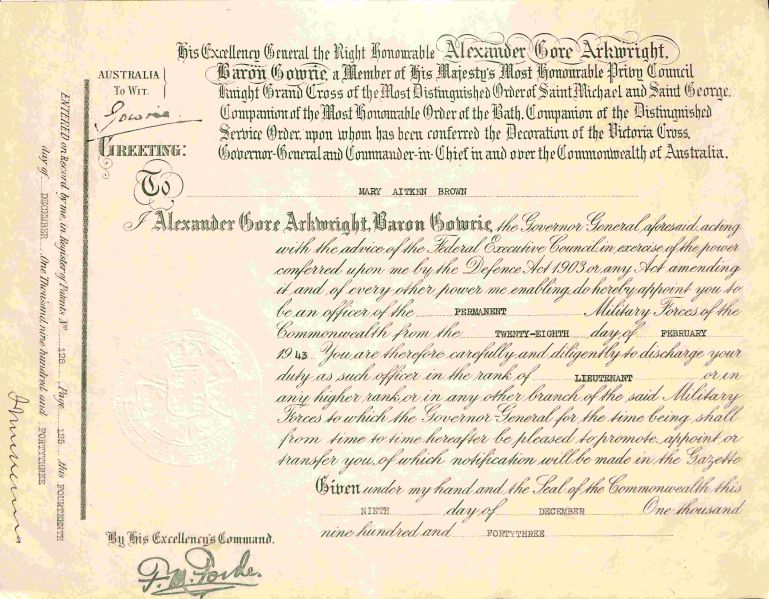 His Excellency General the Right Honourable Alexander Gore Arkwright,
Baron Gowrie, a Member of His Majesty's Most Honourable Privy Council
Knight Grand Cross of the Most Distinguished Order of Saint Michael and Saint George,
Companion of the Most Honourable Order of the Bath, Companion of the Distinguished
Service Order, upon whom has been conferred the Decoration of the Victoria Cross,
Governor-General and Commander-in-Chief in and over the Commonwealth of Australia.
AUSTRALIA
TO WIT.
Gowrie
GREETING:
To
MARY AITKEN BROWN
I Alexander Gore Arkwright, Baron Gowrie, the Governor General, aforesaid, acting
with the advice of the Federal Executive Council, in exercise of the power
conferred upon me by the Defence Act 1903 or any Act amending
it and of every other power me enabling, do hereby appoint you to
be an officer of the PERMANENT Military Forces of the
Commonwealth from the TWENTY-EIGHTH day of FEBRUARY
1943 You are therefore carefully and diligently to discharge your
duty as such officer in the rank of LIEUTENANT or in
any higher rank, or in any other branch of the said Military
Forces to which the Governor General for the time being shall
from time to time hereafter be pleased to promote, appoint or
transfer you, of which notification will be made in the Gazette
Given under my hand and the Seal of the Commonwealth this
NINTH day of DECEMBER One thousand
nine hundred and FORTYTHREE
By His Excellency's Command.
ENTERED on Record by me, in Register of Patents No 128 Page 125 this FOURTEENTH
day of DECEMBER One Thousand nine hundred and FORTYTHREE